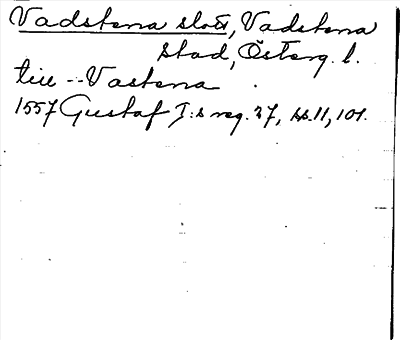 Vadstena slott, Vadstena
stad, Österg. l.
till -- Vastena
1557 Gustaf I:s reg. 27, ss. 11, 101.